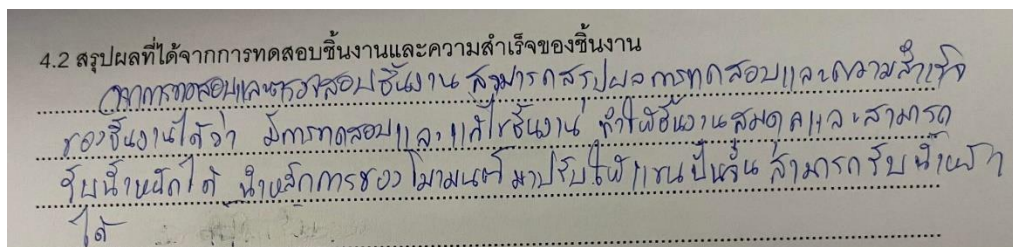 4.2 สรุปผลที่ได้จากการทดสอบชิ้นงานและความสำเร็จของชิ้นงาน
จากการทดสอบและตรวจสอบชิ้นงาน สามารถสรุปผลการทดสอบและความสำเร็จ
ของชิ้นงานได้ว่า มีการทดสอบและแก้ไขชิ้นงาน ทำให้ชิ้นงานสมดุลและสามารถ
รับน้ำหนักได้ นำหลักการของโมเมนต์มาปรับให้แขนปั้นจั่น สามารถรับน้ำหนัก
ได้